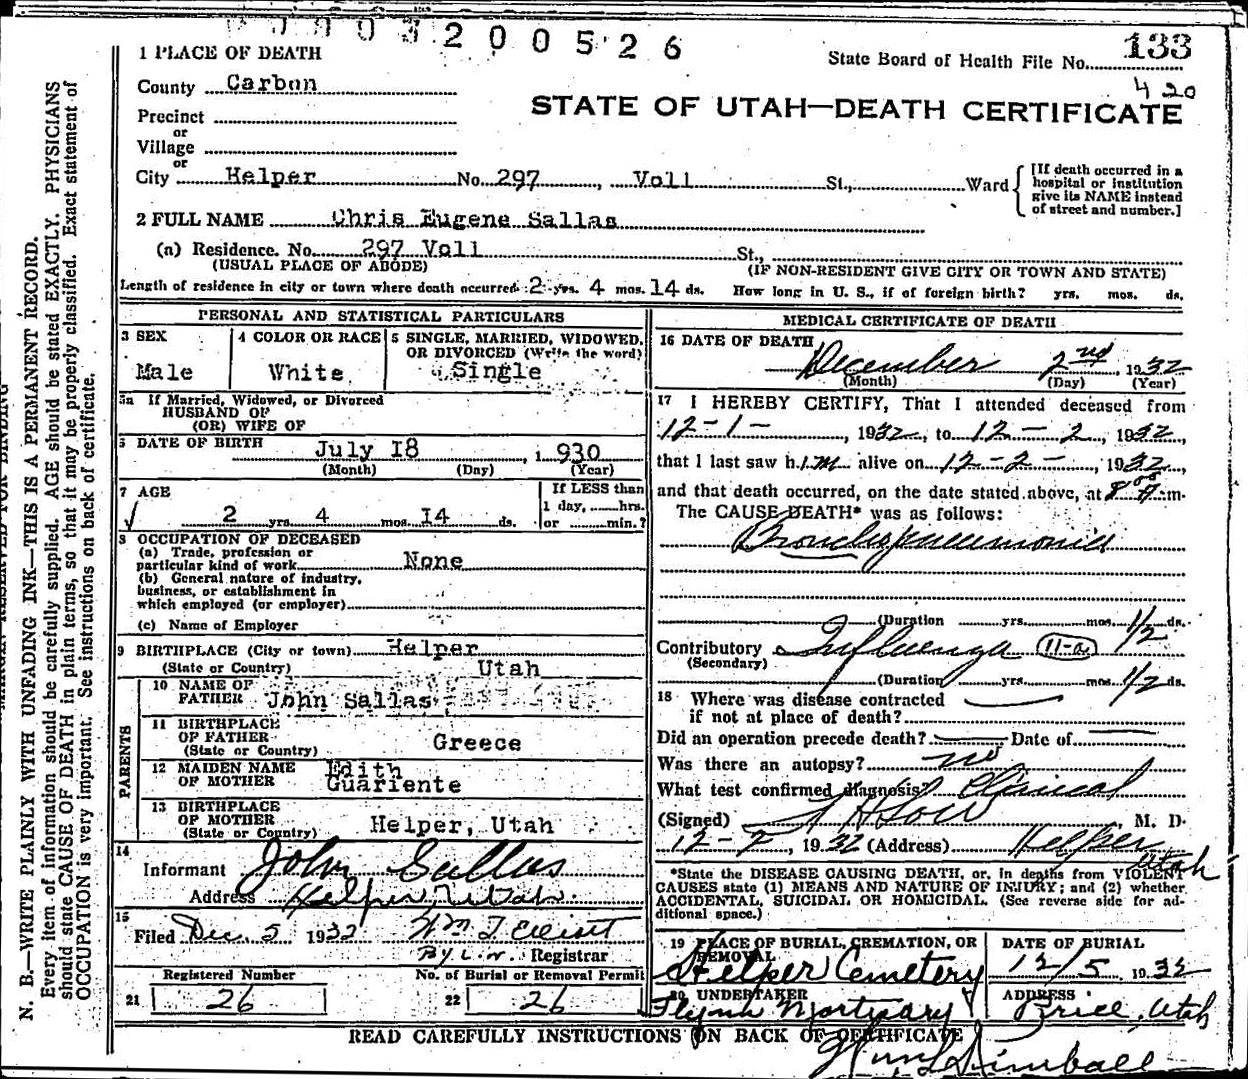 200526
1 PLACE OF DEATH
State Board of Health File No. 133
420
County Carbon
STATE OF UTAH—DEATH CERTIFICATE
Precinct
or
Village
or
City Helper No. 297, Voll St., Ward
[If death occurred in a
hospital or institution
give its NAME instead
of street and number.]
2 FULL NAME Chris Eugene Sallas
(a) Residence. No. 297 Voll St.,
(USUAL PLACE OF ABODE) (IF NON-RESIDENT GIVE CITY OR TOWN AND STATE)
Length of residence in city or town where death occurred 2 yrs. 4 mos. 14 ds. How long in U. S., if of foreign birth? yrs. mos. ds.
PERSONAL AND STATISTICAL PARTICULARS
3 SEX
Male
4 COLOR OR RACE
White
5 SINGLE, MARRIED, WIDOWED,
OR DIVORCED (Write the word)
Single
5a If Married, Widowed, or Divorced
HUSBAND OF
(OR) WIFE OF
6 DATE OF BIRTH July 18, 1930
(Month) (Day) (Year)
7 AGE
2 yrs. 4 mos. 14 ds.
If LESS than
1 day, ......hrs.
or ......min.?
8 OCCUPATION OF DECEASED
(a) Trade, profession or
particular kind of work None
(b) General nature of industry,
business, or establishment in
which employed (or employer)
(c) Name of Employer
9 BIRTHPLACE (City or town) Helper
(State or Country) Utah
PARENTS
10 NAME OF
FATHER John Sallas
11 BIRTHPLACE
OF FATHER
(State or Country) Greece
12 MAIDEN NAME
OF MOTHER Edith
Guariente
13 BIRTHPLACE
OF MOTHER
(State or Country) Helper, Utah
14
Informant John Sallas
Address Helper, Utah
15
Filed Dec. 5 1932 Wm T Elliott
By L. W. Registrar
Registered Number
21 26
No. of Burial or Removal Permit
22 26
MEDICAL CERTIFICATE OF DEATH
16 DATE OF DEATH
December 2nd 1932
(Month) (Day) (Year)
17 I HEREBY CERTIFY, That I attended deceased from
12-1-, 1932, to 12-2, 1932,
that I last saw him alive on 12-2-, 1932,
and that death occurred, on the date stated above, at 8:00 m.
The CAUSE DEATH* was as follows:
Bronchopneumonia
(Duration yrs. mos. 1/2 ds.
Contributory Influenza 11-a
(Secondary)
(Duration yrs. mos. 1/2 ds.
18 Where was disease contracted
if not at place of death?
Did an operation precede death? Date of
Was there an autopsy? no
What test confirmed diagnosis? Clinical
(Signed) M. D.
12-2, 1932 (Address) Helper
Utah
*State the DISEASE CAUSING DEATH, or, in deaths from VIOLENT
CAUSES state (1) MEANS AND NATURE OF INJURY; and (2) whether
ACCIDENTAL, SUICIDAL OR HOMICIDAL. (See reverse side for ad-
ditional space.)
19 PLACE OF BURIAL, CREMATION, OR
REMOVAL
Helper Cemetery
DATE OF BURIAL
12/5 1932
20 UNDERTAKER
Flynn Mortuary
ADDRESS
Price, Utah
READ CAREFULLY INSTRUCTIONS ON BACK OF CERTIFICATE
Kimball
N. B.—WRITE PLAINLY WITH UNFADING INK—THIS IS A PERMANENT RECORD.
Every item of information should be carefully supplied. AGE should be stated EXACTLY. PHYSICIANS
should state CAUSE OF DEATH in plain terms, so that it may be properly classified. Exact statement of
OCCUPATION is very important. See instructions on back of certificate.